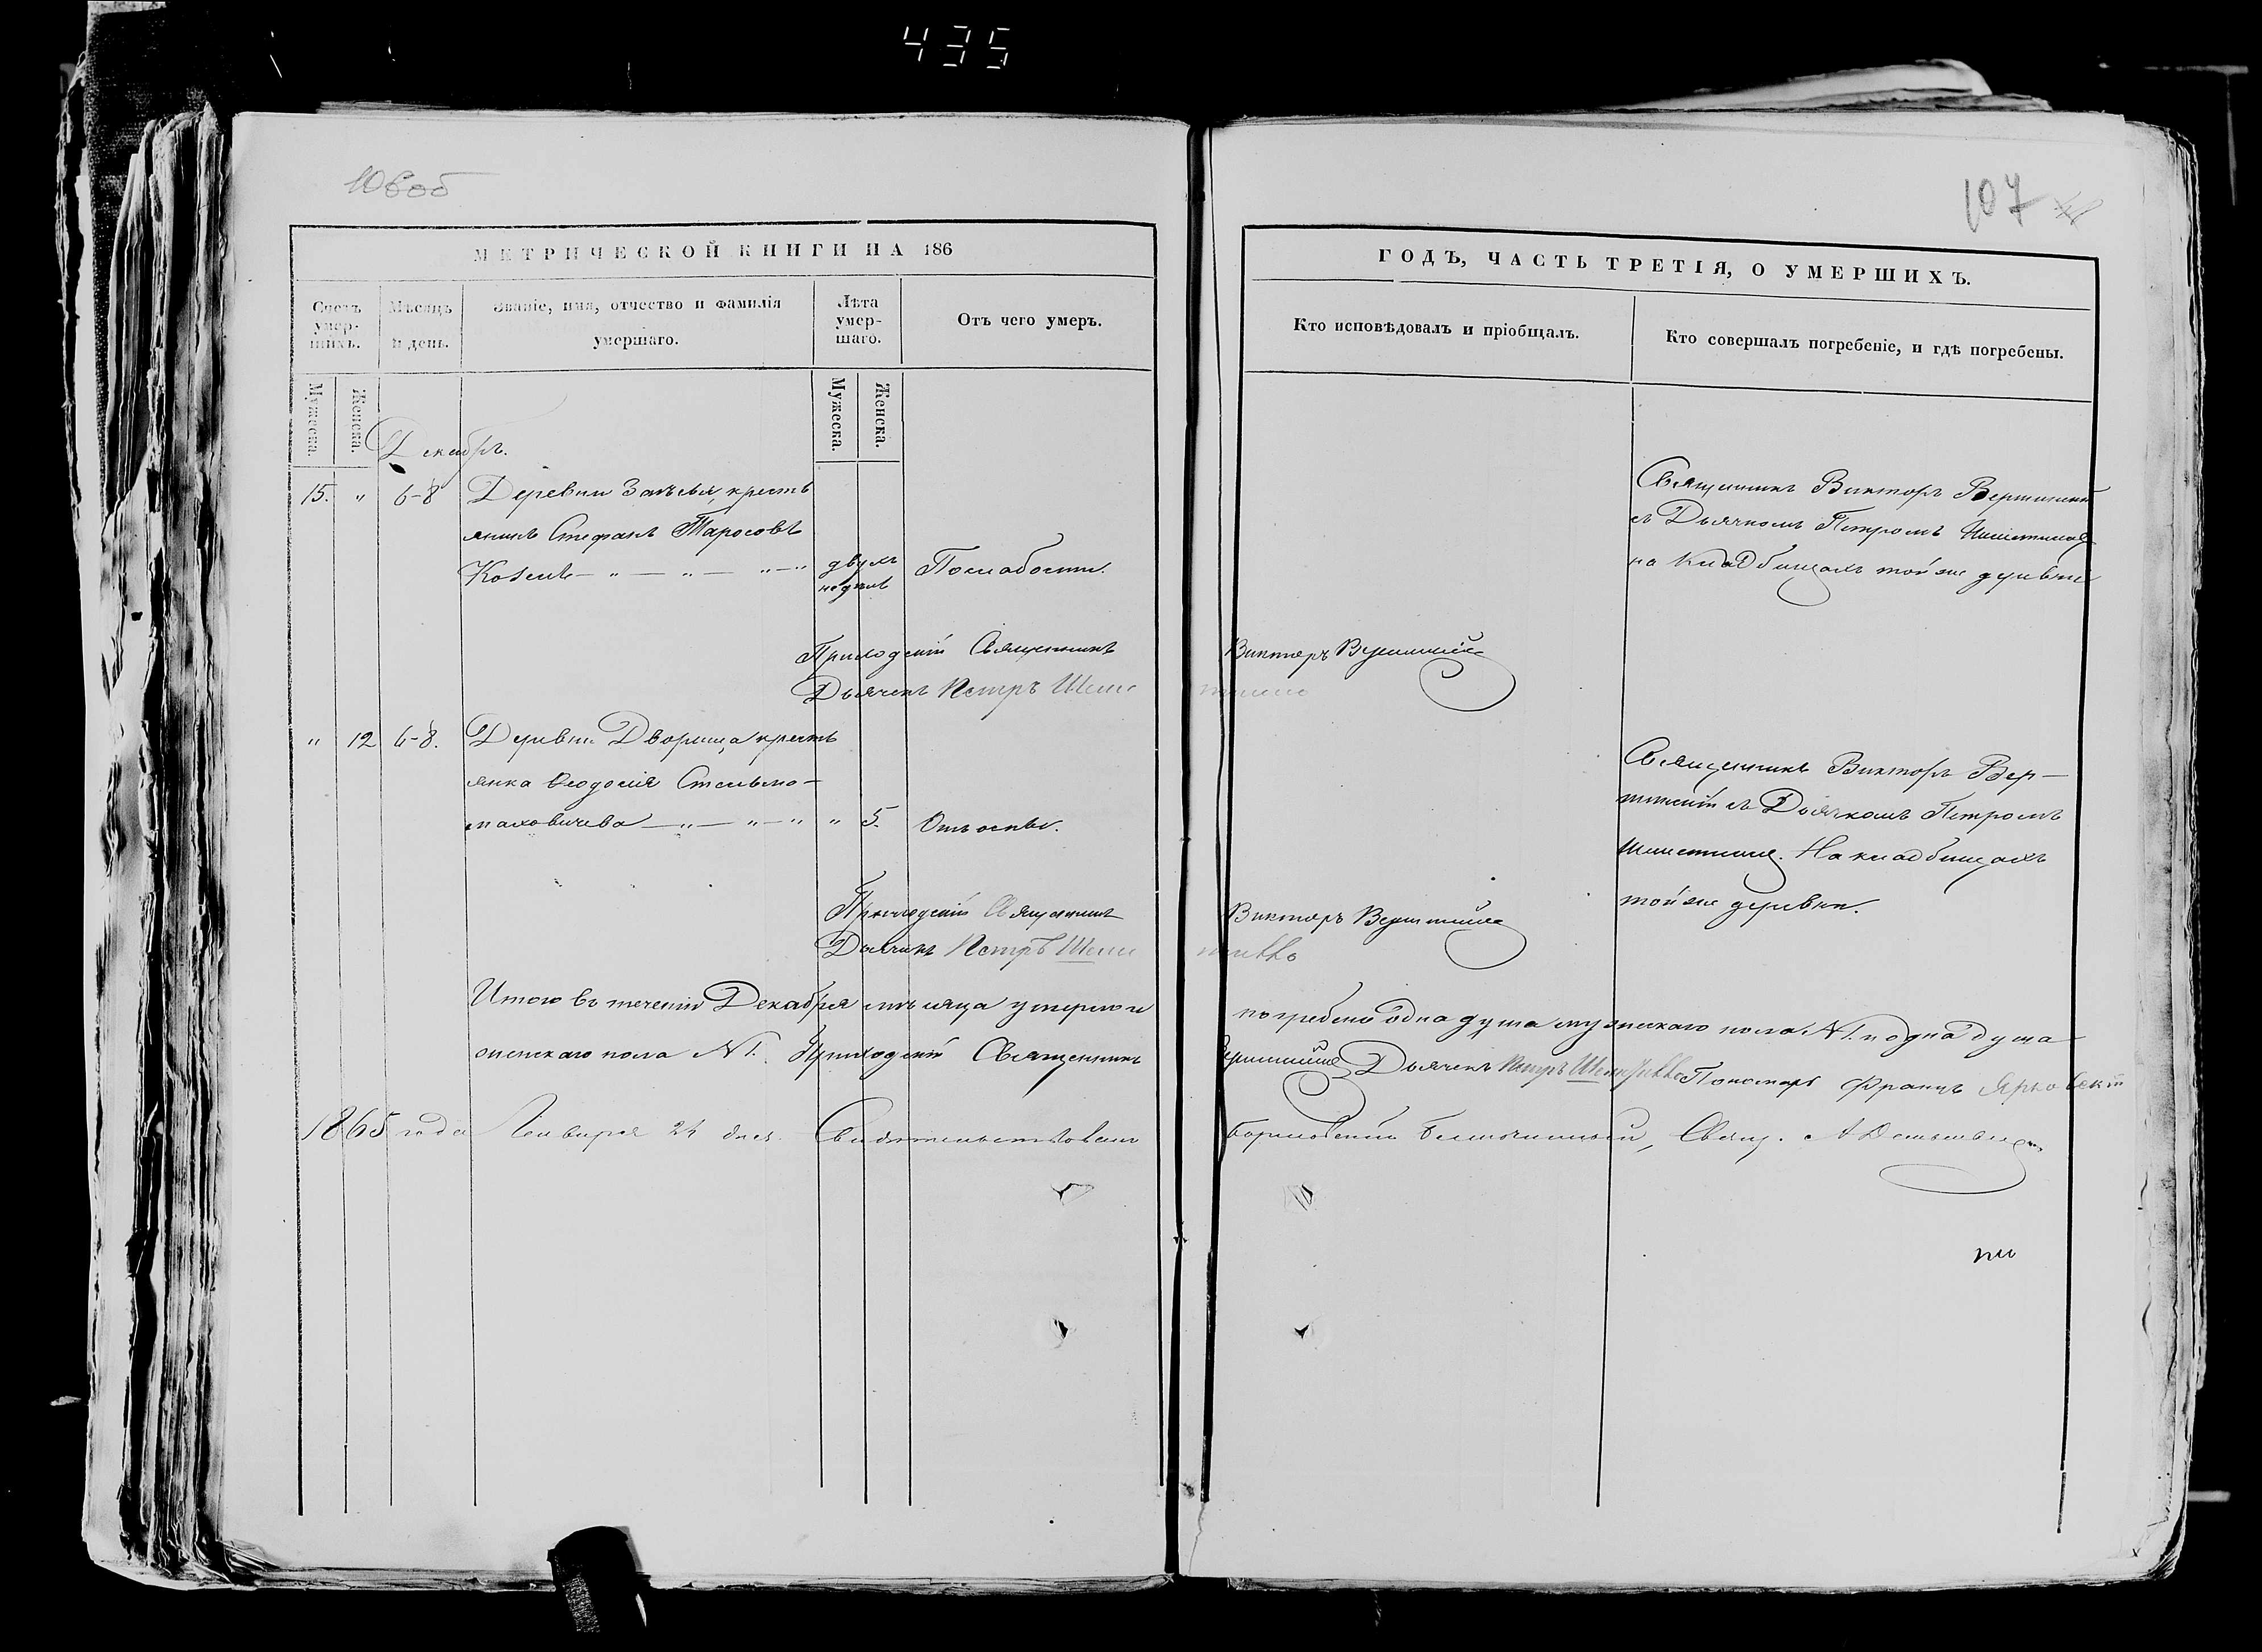 435
106об
107
МЕТРИЧЕСКОЙ КНИГИ НА 186
ГОДЪ, ЧАСТЬ ТРЕТІЯ, О УМЕРШИХЪ.
Счетъ умер-шихъ.
Мѣсяцъ и день.
Званіе, имя, отчество и фамилія
умершаго.
Лѣта умер-шаго.
Отъ чего умеръ.
Кто исповѣдовалъ и пріобщалъ.
Кто совершалъ погребеніе, и гдѣ погребены.
Мужеска.
Женска.
Мужеска.
Женска.
Декабрь.
15. " 6-8 Деревни крестъ
янинъ Стефанъ Таросовъ
Козелъ — " — " — " — " двухъ
недѣль
Послабости.
Священникъ Викторъ
съ Дьячкомъ Петромъ
на Кладбищахъ той же деревни
Приходскій Священникъ Викторъ
Дьячекъ Петръ
" 12 6-8. Деревни Дворища крестъ
янка Ѳеодосія Стельмо-
маховичева — " — " — " " 5. Отъ оспы.
Священникъ Викторъ Вер-
съ Дьячкомъ Петромъ
На кладбищахъ
той же деревни.
Приходскій Священникъ Викторъ
Дьячекъ Петръ
Итого въ теченіи Декабря мѣсяца умерло и погребено одна душа мужескаго пола N1. и одна душа
женскаго пола N1. Приходскій Священникъ Дьячекъ Петръ Пономарь Францъ Ярковскій
1865 года Генваря 24 дня. Свидѣтельствовалъ Благочинный, Свящ. А